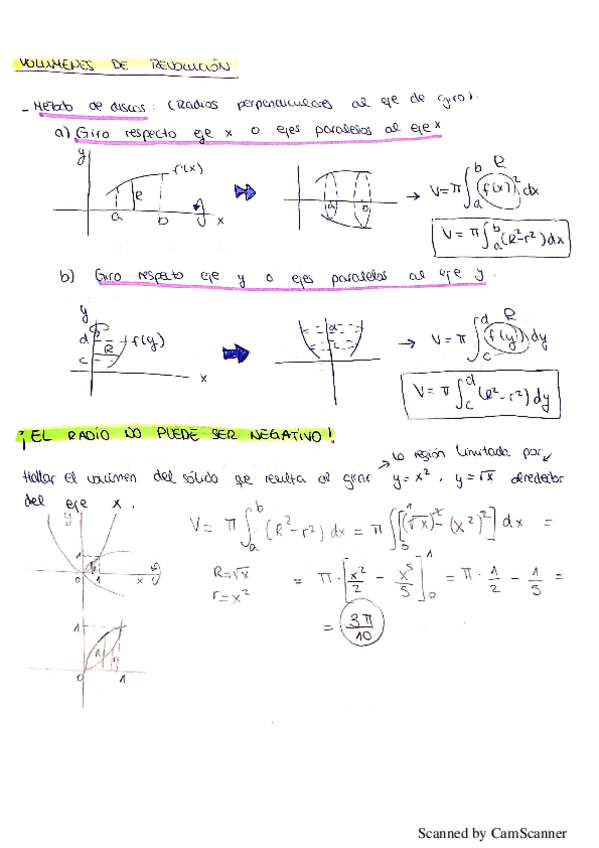 VOLUMENES DE REVOLUCIÓN
- Método de discos: (Radios perpendiculares al eje de giro).
a) Giro respecto eje x o ejes paralelos al eje x
y f(x) R a b x → V = π∫_a^b (f(x))² dx R
V = π∫_a^b (R²-r²) dx
b) Giro respecto eje y o ejes paralelos al eje y.
y d c R f(y) x → V = π∫_c^d (f(y)) dy R
V = π∫_c^d (R²-r²) dy
¡EL RADIO NO PUEDE SER NEGATIVO!
la región limitada por
Hallar el volumen del sólido que resulta al girar y=x², y=√x alrededor
del eje x.
y 1 0 1 x
V = π∫_a^b (R²-r²) dx = π∫_0^1 [(√x)² - (x²)²] dx =
R=√x
r=x²
= π·[x²/2 - x⁵/5]_0^1 = π·1/2 - 1/5 =
= 3π/10
1 0 1
Scanned by CamScanner